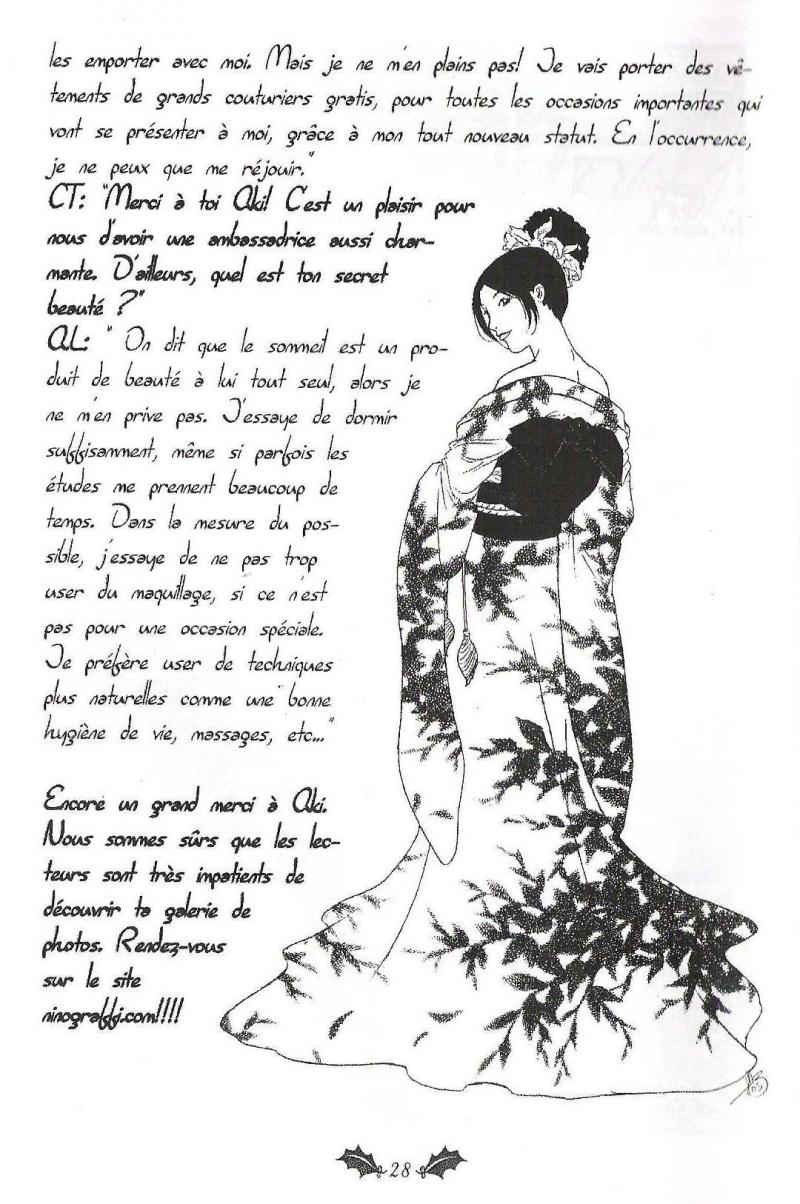 les emporter avec moi. Mais je ne m'en plains pas! Je vais porter des vê-
tements de grands couturiers gratis, pour toutes les occasions importantes qui
vont se présenter à moi, grâce à mon tout nouveau statut. En l'occurrence,
je ne peux que me réjouir."
CT: "Merci à toi Aki! C'est un plaisir pour
nous d'avoir une ambassadrice aussi char-
mante. D'ailleurs, quel est ton secret
beauté ?"
AL: " On dit que le sommeil est un pro-
duit de beauté à lui tout seul, alors je
ne m'en prive pas. J'essaye de dormir
suffisamment, même si parfois les
études me prennent beaucoup de
temps. Dans la mesure du pos-
sible, j'essaye de ne pas trop
user du maquillage, si ce n'est
pas pour une occasion spéciale.
Je préfère user de techniques
plus naturelles comme une bonne
hygiène de vie, massages, etc..."
Encore un grand merci à Aki.
Nous sommes sûrs que les lec-
teurs sont très impatients de
découvrir ta galerie de
photos. Rendez-vous
sur le site
ninograffi.com!!!!
28